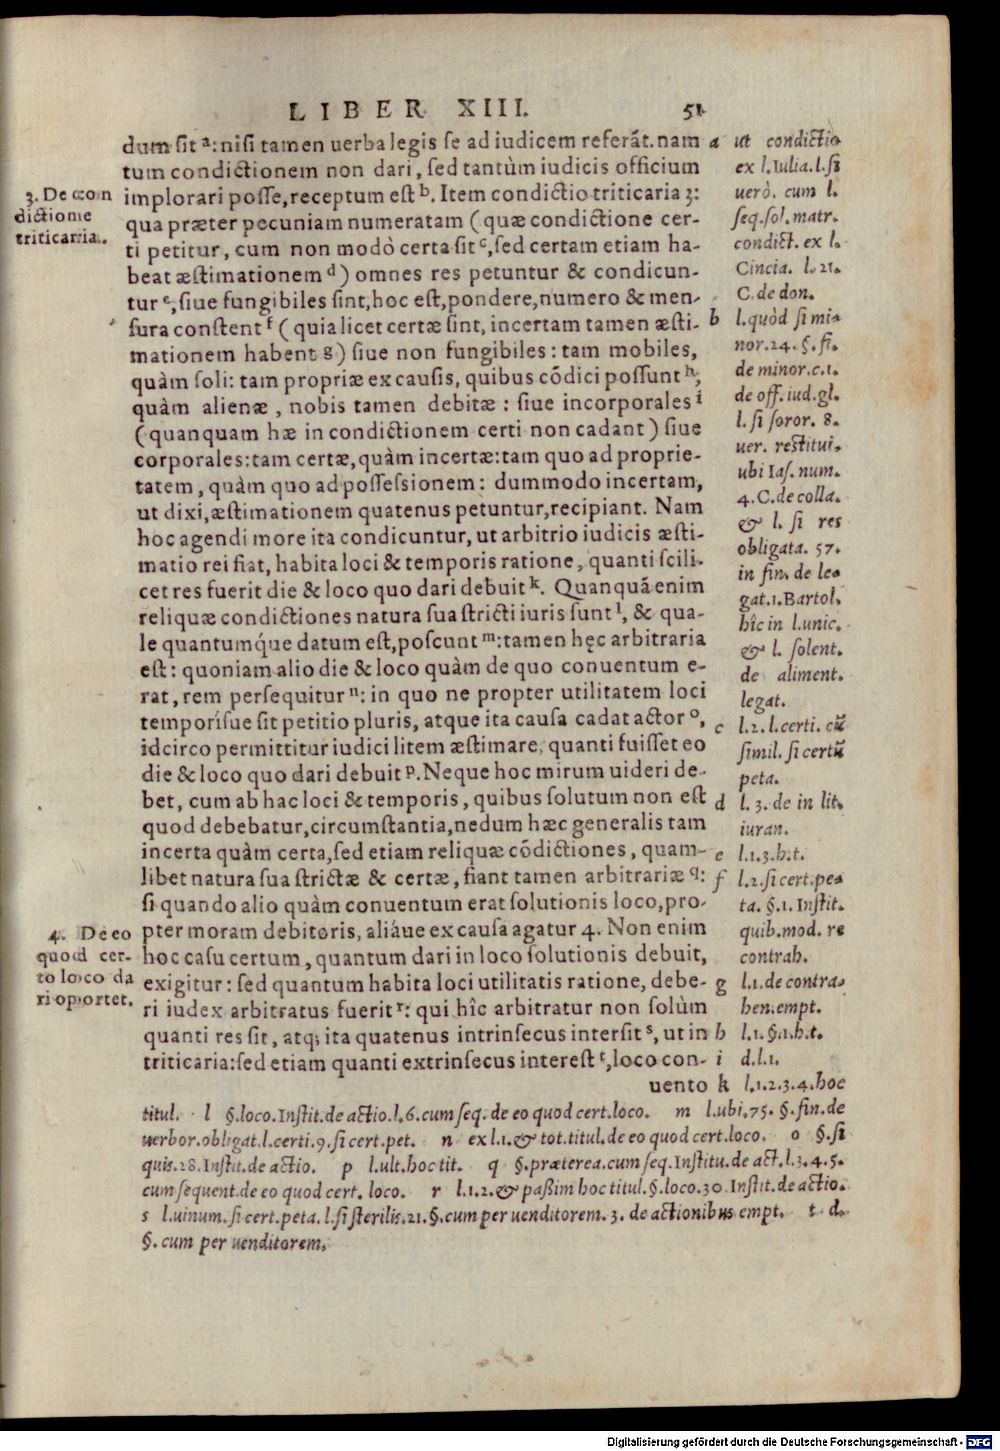 LIBER XIII. 51
dum sit ª: nisi tamen uerba legis se ad iudicem referāt. nam
tum condictionem non dari, sed tantùm iudicis officium
implorari posse, receptum est ᵇ. Item condictio triticaria 3:
qua præter pecuniam numeratam (quæ condictione cer-
ti petitur, cum non modò certa sit ᶜ, sed certam etiam ha-
beat æstimationem ᵈ) omnes res petuntur & condicun-
tur ᵉ, siue fungibiles sint, hoc est, pondere, numero & men-
sura constent ᶠ (quia licet certæ sint, incertam tamen æsti-
mationem habent ᵍ) siue non fungibiles: tam mobiles,
quàm soli: tam propriæ ex causis, quibus cōdici possunt ʰ,
quàm alienæ, nobis tamen debitæ: siue incorporales ⁱ
(quanquam hæ in condictionem certi non cadant) siue
corporales: tam certæ, quàm incertæ: tam quo ad proprie-
tatem, quàm quo ad possessionem: dummodo incertam,
ut dixi, æstimationem quatenus petuntur, recipiant. Nam
hoc agendi more ita condicuntur, ut arbitrio iudicis æsti-
matio rei fiat, habita loci & temporis ratione, quanti scili-
cet res fuerit die & loco quo dari debuit ᵏ. Quanquā enim
reliquæ condictiones natura sua stricti iuris sunt ˡ, & qua-
le quantumq́ue datum est, poscunt ᵐ: tamen hęc arbitraria
est: quoniam alio die & loco quàm de quo conuentum e-
rat, rem persequitur ⁿ: in quo ne propter utilitatem loci
temporísue sit petitio pluris, atque ita causa cadat actor ᵒ,
idcirco permittitur iudici litem æstimare, quanti fuisset eo
die & loco quo dari debuit ᵖ. Neque hoc mirum uideri de-
bet, cum ab hac loci & temporis, quibus solutum non est
quod debebatur, circumstantia, nedum hæc generalis tam
incerta quàm certa, sed etiam reliquæ cōdictiones, quam-
libet natura sua strictæ & certæ, fiant tamen arbitrariæ q:
si quando alio quàm conuentum erat solutionis loco, pro-
pter moram debitoris, aliáue ex causa agatur 4. Non enim
hoc casu certum, quantum dari in loco solutionis debuit,
exigitur: sed quantum habita loci utilitatis ratione, debe-
ri iudex arbitratus fuerit ʳ: qui hîc arbitratur non solùm
quanti res sit, atq; ita quatenus intrinsecus intersit ˢ, ut in
triticaria: sed etiam quanti extrinsecus interest ᵗ, loco con-
uento
3. De con
dictione
triticaria.
4. De eo
quod cer-
to loco da
ri oportet.
a ut condictio
ex l. Iulia. l. si
uerò. cum l.
seq. sol. matr.
condict. ex l.
Cincia. l. 21.
C. de don.
b l. quòd si mi-
nor. 24. §. fi.
de minor. c. 1.
de off. iud. gl.
l. si soror. 8.
uer. restitui.
ubi Ias. num.
4. C. de colla.
& l. si res
obligata. 57.
in fin. de le-
gat. 1. Bartol.
hîc in l. unic.
& l. solent.
de aliment.
legat.
c l. 2. l. certi. cū
simil. si certū
peta.
d l. 3. de in lit.
iuran.
e l. 1. 3. h. t.
f l. 2. si cert. pe-
ta. §. 1. Instit.
quib. mod. re
contrah.
g l. 1. de contra-
hen. empt.
h l. 1. §. 1. h. t.
i d. l. 1.
k l. 1. 2. 3. 4. hoc
titul. l §. loco. Instit. de actio. l. 6. cum seq. de eo quod cert. loco. m l. ubi. 75. §. fin. de
uerbor. obligat. l. certi. 9. si cert. pet. n ex l. 1. & tot. titul. de eo quod cert. loco. o §. si
quis. 28. Instit. de actio. p l. ult. hoc tit. q §. præterea. cum seq. Institu. de act. l. 3. 4. 5.
cum sequent. de eo quod cert. loco. r l. 1. 2. & paßim hoc titul. §. loco. 30. Instit. de actio.
s l. uinum. si cert. peta. l. si sterilis. 21. §. cum per uenditorem. 3. de actionibus empt. t d.
§. cum per uenditorem.
Digitalisierung gefördert durch die Deutsche Forschungsgemeinschaft - DFG